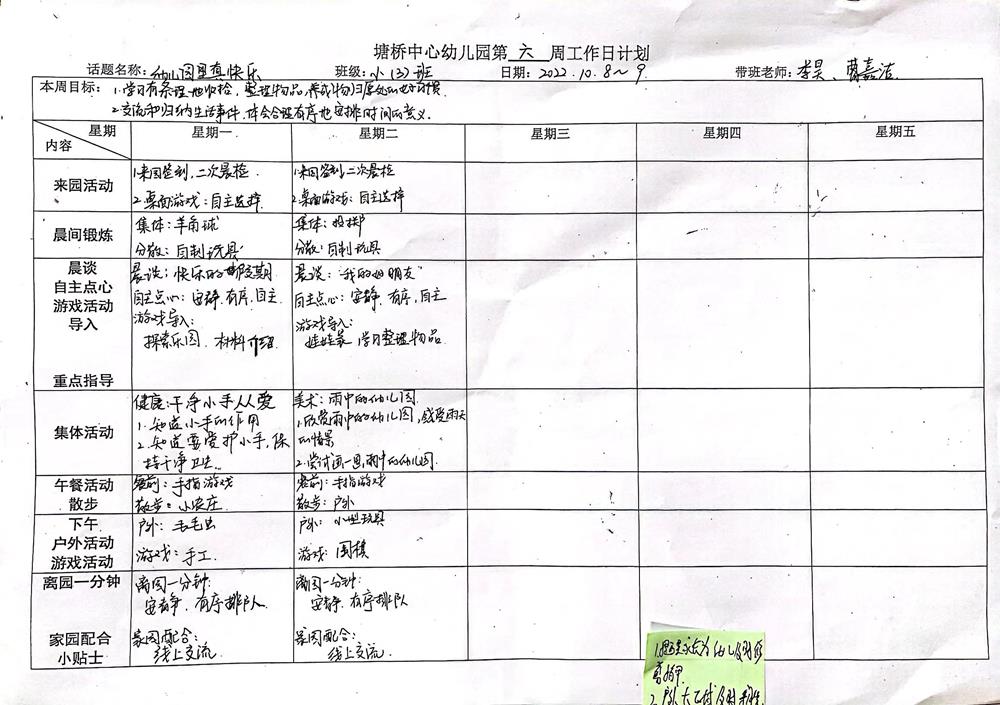 塘桥中心幼儿园第 六 周工作日计划
话题名称：幼儿园里真快乐 班级：小（3）班 日期：2022.10.8～9. 带班老师：李昊、曹嘉洁
本周目标：1.学习有条理地收检，整理物品，养成物归原处的好习惯
2.交流和归纳生活事件，体会合理有序地安排时间的意义.
星期 星期一 星期二 星期三 星期四 星期五
内容
来园活动
1.来园签到，二次晨检
2.桌面游戏：自主选择
1.来园签到，二次晨检
2.桌面游戏：自主选择
晨间锻炼
集体：羊角球
分散：自制玩具
集体：投掷
分散：自制玩具
晨谈
自主点心
游戏活动
导入
重点指导
晨谈：快乐的假期
自主点心：安静.有序.自主.
游戏导入：
探索乐园.材料介绍
晨谈："我的好朋友"
自主点心：安静.有序，自主
游戏导入：
娃娃家 学习整理物品
集体活动
健康：干净小手人人爱
1.知道小手的作用
2.知道要爱护小手，保
持干净卫生.
美术：雨中的幼儿园
1.欣赏雨中的幼儿园，感受雨天
的情景
2.尝试画一画雨中的幼儿园.
午餐活动
散步
餐前：手指游戏
散步：小农庄
餐前：手指游戏
散步：户外
下午
户外活动
游戏活动
户外：毛毛虫
游戏：手工.
户外：小型玩具
游戏：围棋
离园一分钟
离园一分钟：
安静.有序排队.
离园一分钟：
安静.有序排队
家园配合
小贴士
家园配合：
线上交流.
家园配合：
线上交流.
剪指甲